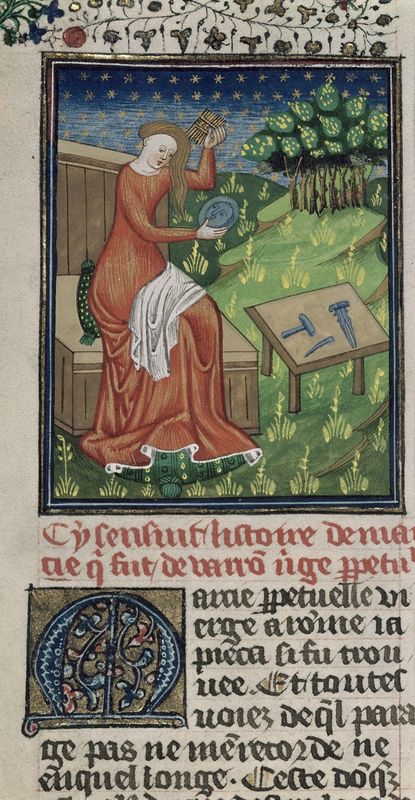 Cy sensuit listoire de mar
cie q̃ fut de varrõ v̾ge ꝑpetu
Marcie ꝑpetuelle vi
erge a rõme ia
pieca si fu trou
uee. Et toutes
uoiez de q̃l para
ge pas ne me recorde ne
en quel longe. Ceste dõq̃z